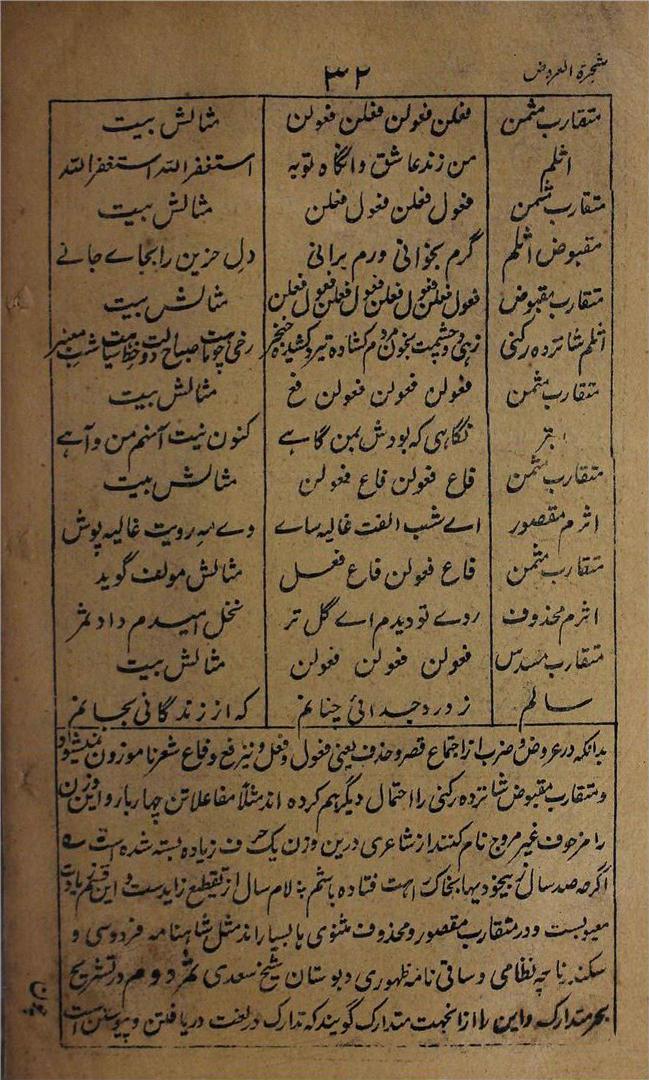 شجرة العروض
۳۲
متقارب مثمن فعلن فعولن فعلن فعولن مثالش بیت
اثلم من زند عاشق وانگاه توبه استغفر الله استغفر الله
متقارب مثمن فعول فعلن فعول فعلن مثالش بیت
مقبوض اثلم گرم بخوانی ورم برانی دل حزین را بجاے جانے
متقارب مقبوض فعول فعلن فعول فعلن فعول فعلن فعول فعلن مثالش بیت
اثلم شانزده رکنی زہی دو چشمت بخون مردم کشاده تیر و کشیده خنجر رخی چو ماہت صباح دولت خط سیاہت شب معنبر
متقارب مثمن فعولن فعولن فعولن فع مثالش بیت
ابتر نگاہی کہ بودش بمن گاہے کنون نیست آنہم من و آہے
متقارب مثمن فاع فعولن فاع فعولن مثالش بیت
اثرم مقصور اے شب الفت غالیہ ساے وے مہ رویت غالیہ پوش
متقارب مثمن فاع فعولن فاع فعل مثالش مولف گوید
اثرم محذوف روے تو دیدم اے گل تر نخل امیدم داد ثمر
متقارب مسدس فعولن فعولن فعولن مثالش بیت
سالم ز درد جدائی چنانم کہ از زندگانی بجانم
بدانکہ در عروض و ضرب از اجتماع قصر و حذف یعنی فعول و فعل و نیز فع و فاع شعر ناموزون نمیشود
و متقارب مقبوض شانزده رکنی را احتمال دیگر ہم کرده اند مثلاً مفاعلاتن چہار بار و این وزن
را مزحوف غیر مروج نام کنند از شاعری درین وزن یک حرف زیاده بستہ شده است
اگرچہ صد سال ز بیخودیہا بخاک راہت فتاده باشم لام سال از تقطیع زایدست و این قسم زیادت
معیوبست و در متقارب مقصور و محذوف مثنوی ہا بسیار اند مثل شاہنامہ فردوسی و
سکندر نامہ نظامی و ساقی نامہ ظہوری و بوستان شیخ سعدی ثمر دوم در تشریح
بحر متدارک و این را ازانجہت متدارک گویند کہ تدارک در لغت دریافتن و پیوستن است
چون